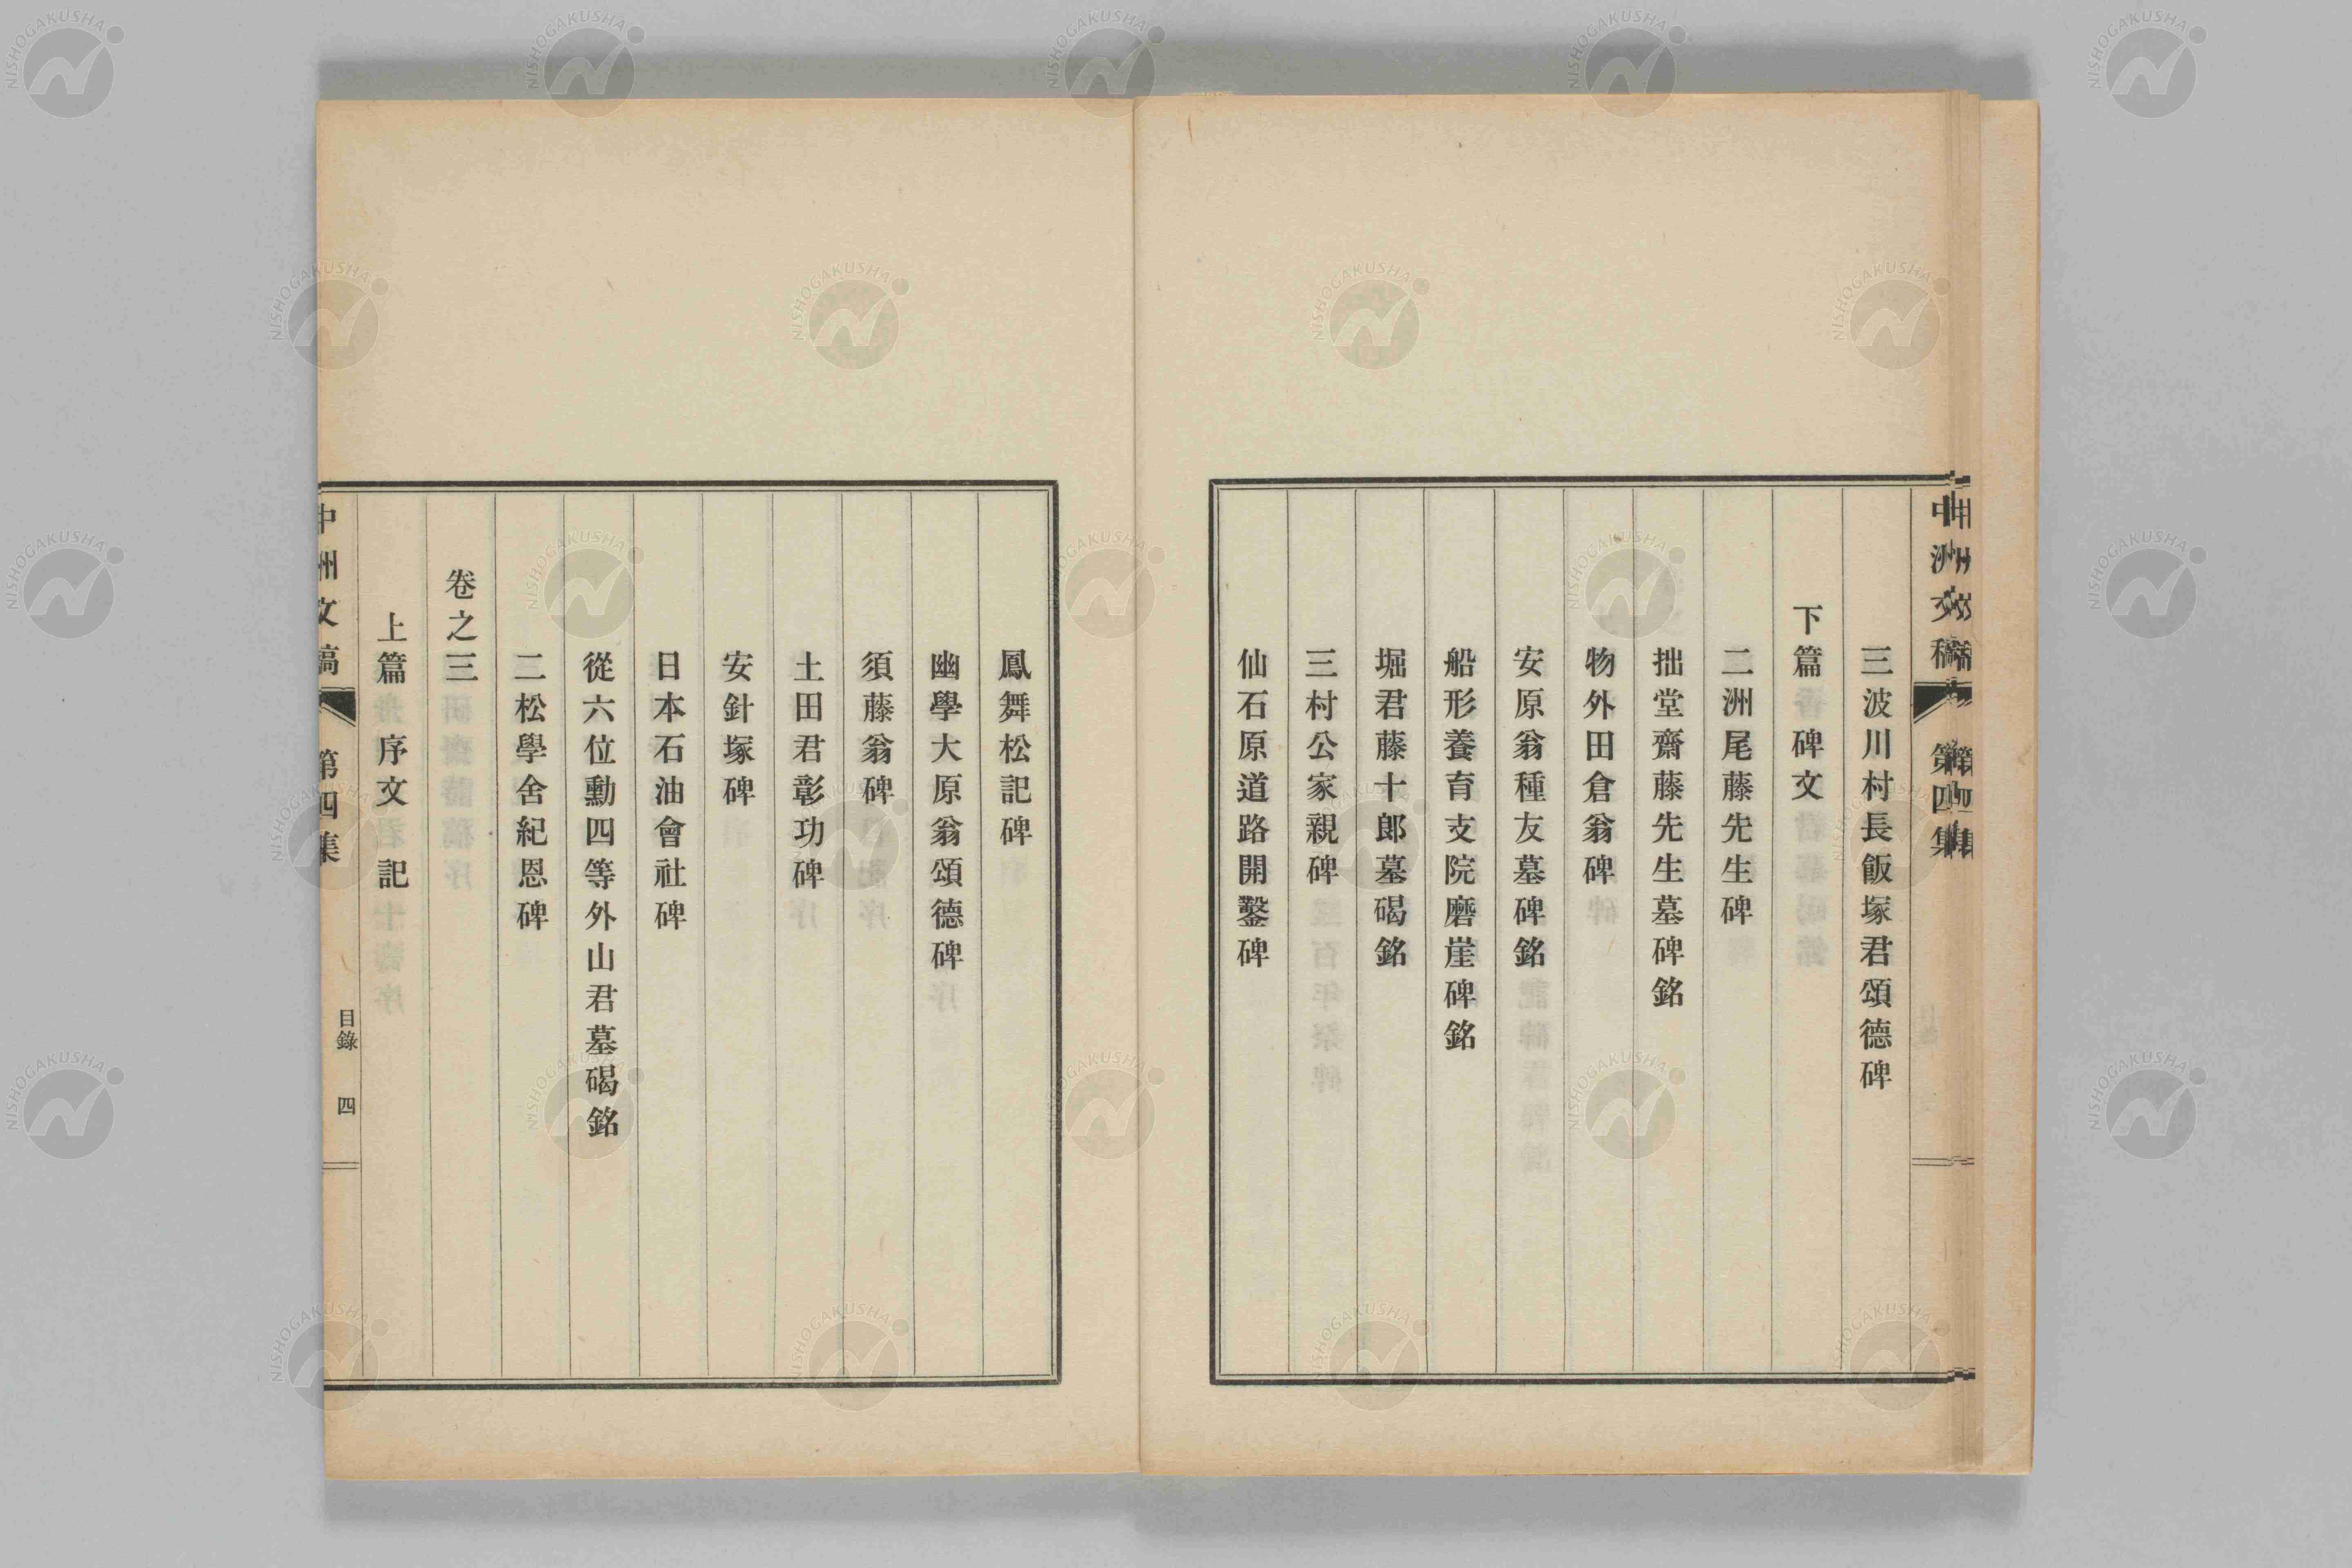 三波川村長飯塚君頌德碑
下篇 碑文
二洲尾藤先生碑
拙堂齋藤先生墓碑銘
物外田倉翁碑
安原翁種友墓碑銘
船形養育支院磨崖碑銘
堀君藤十郎墓碣銘
三村公家親碑
仙石原道路開鑿碑
鳳舞松記碑
幽學大原翁頌德碑
須藤翁碑
土田君彰功碑
安針塚碑
日本石油會社碑
從六位勳四等外山君墓碣銘
二松學舍紀恩碑
卷之三
上篇 序文 記
中洲文稿 第四集 目錄 四
中洲文稿 第四集
NISHOGAKUSHA